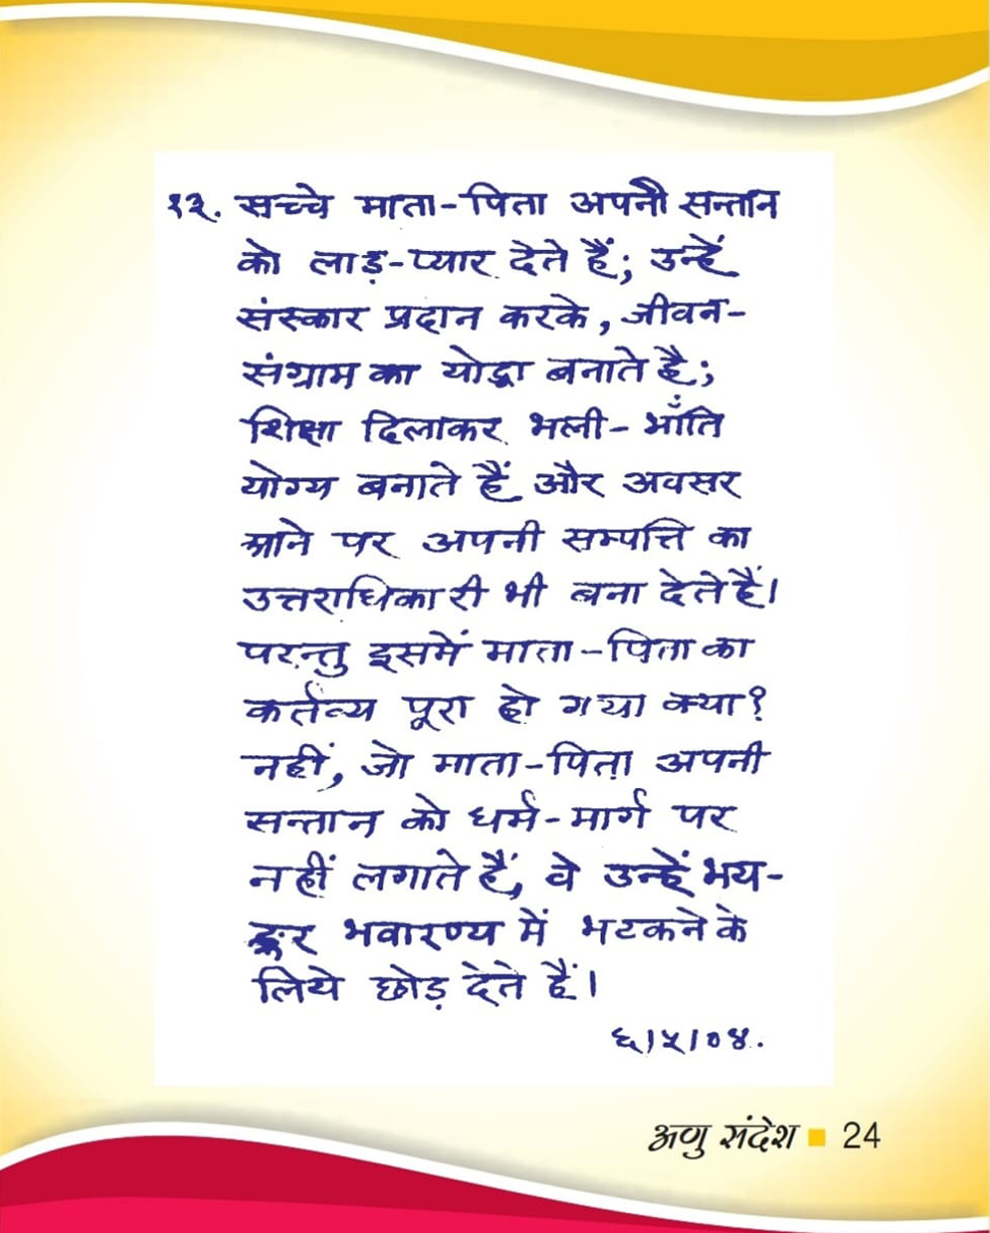 १३. सच्चे माता-पिता अपनी सन्तान
को लाड़-प्यार देते हैं; उन्हें
संस्कार प्रदान करके, जीवन-
संग्राम का योद्धा बनाते है;
शिक्षा दिलाकर भली-भाँति
योग्य बनाते हैं और अवसर
आने पर अपनी सम्पत्ति का
उत्तराधिकारी भी बना देते हैं।
परन्तु इसमें माता-पिता का
कर्तव्य पूरा हो गया क्या?
नहीं, जो माता-पिता अपनी
सन्तान को धर्म-मार्ग पर
नहीं लगाते हैं, वे उन्हें भय-
ङ्कर भवारण्य में भटकने के
लिये छोड़ देते हैं।
६।५।०४.
अणु संदेश 24